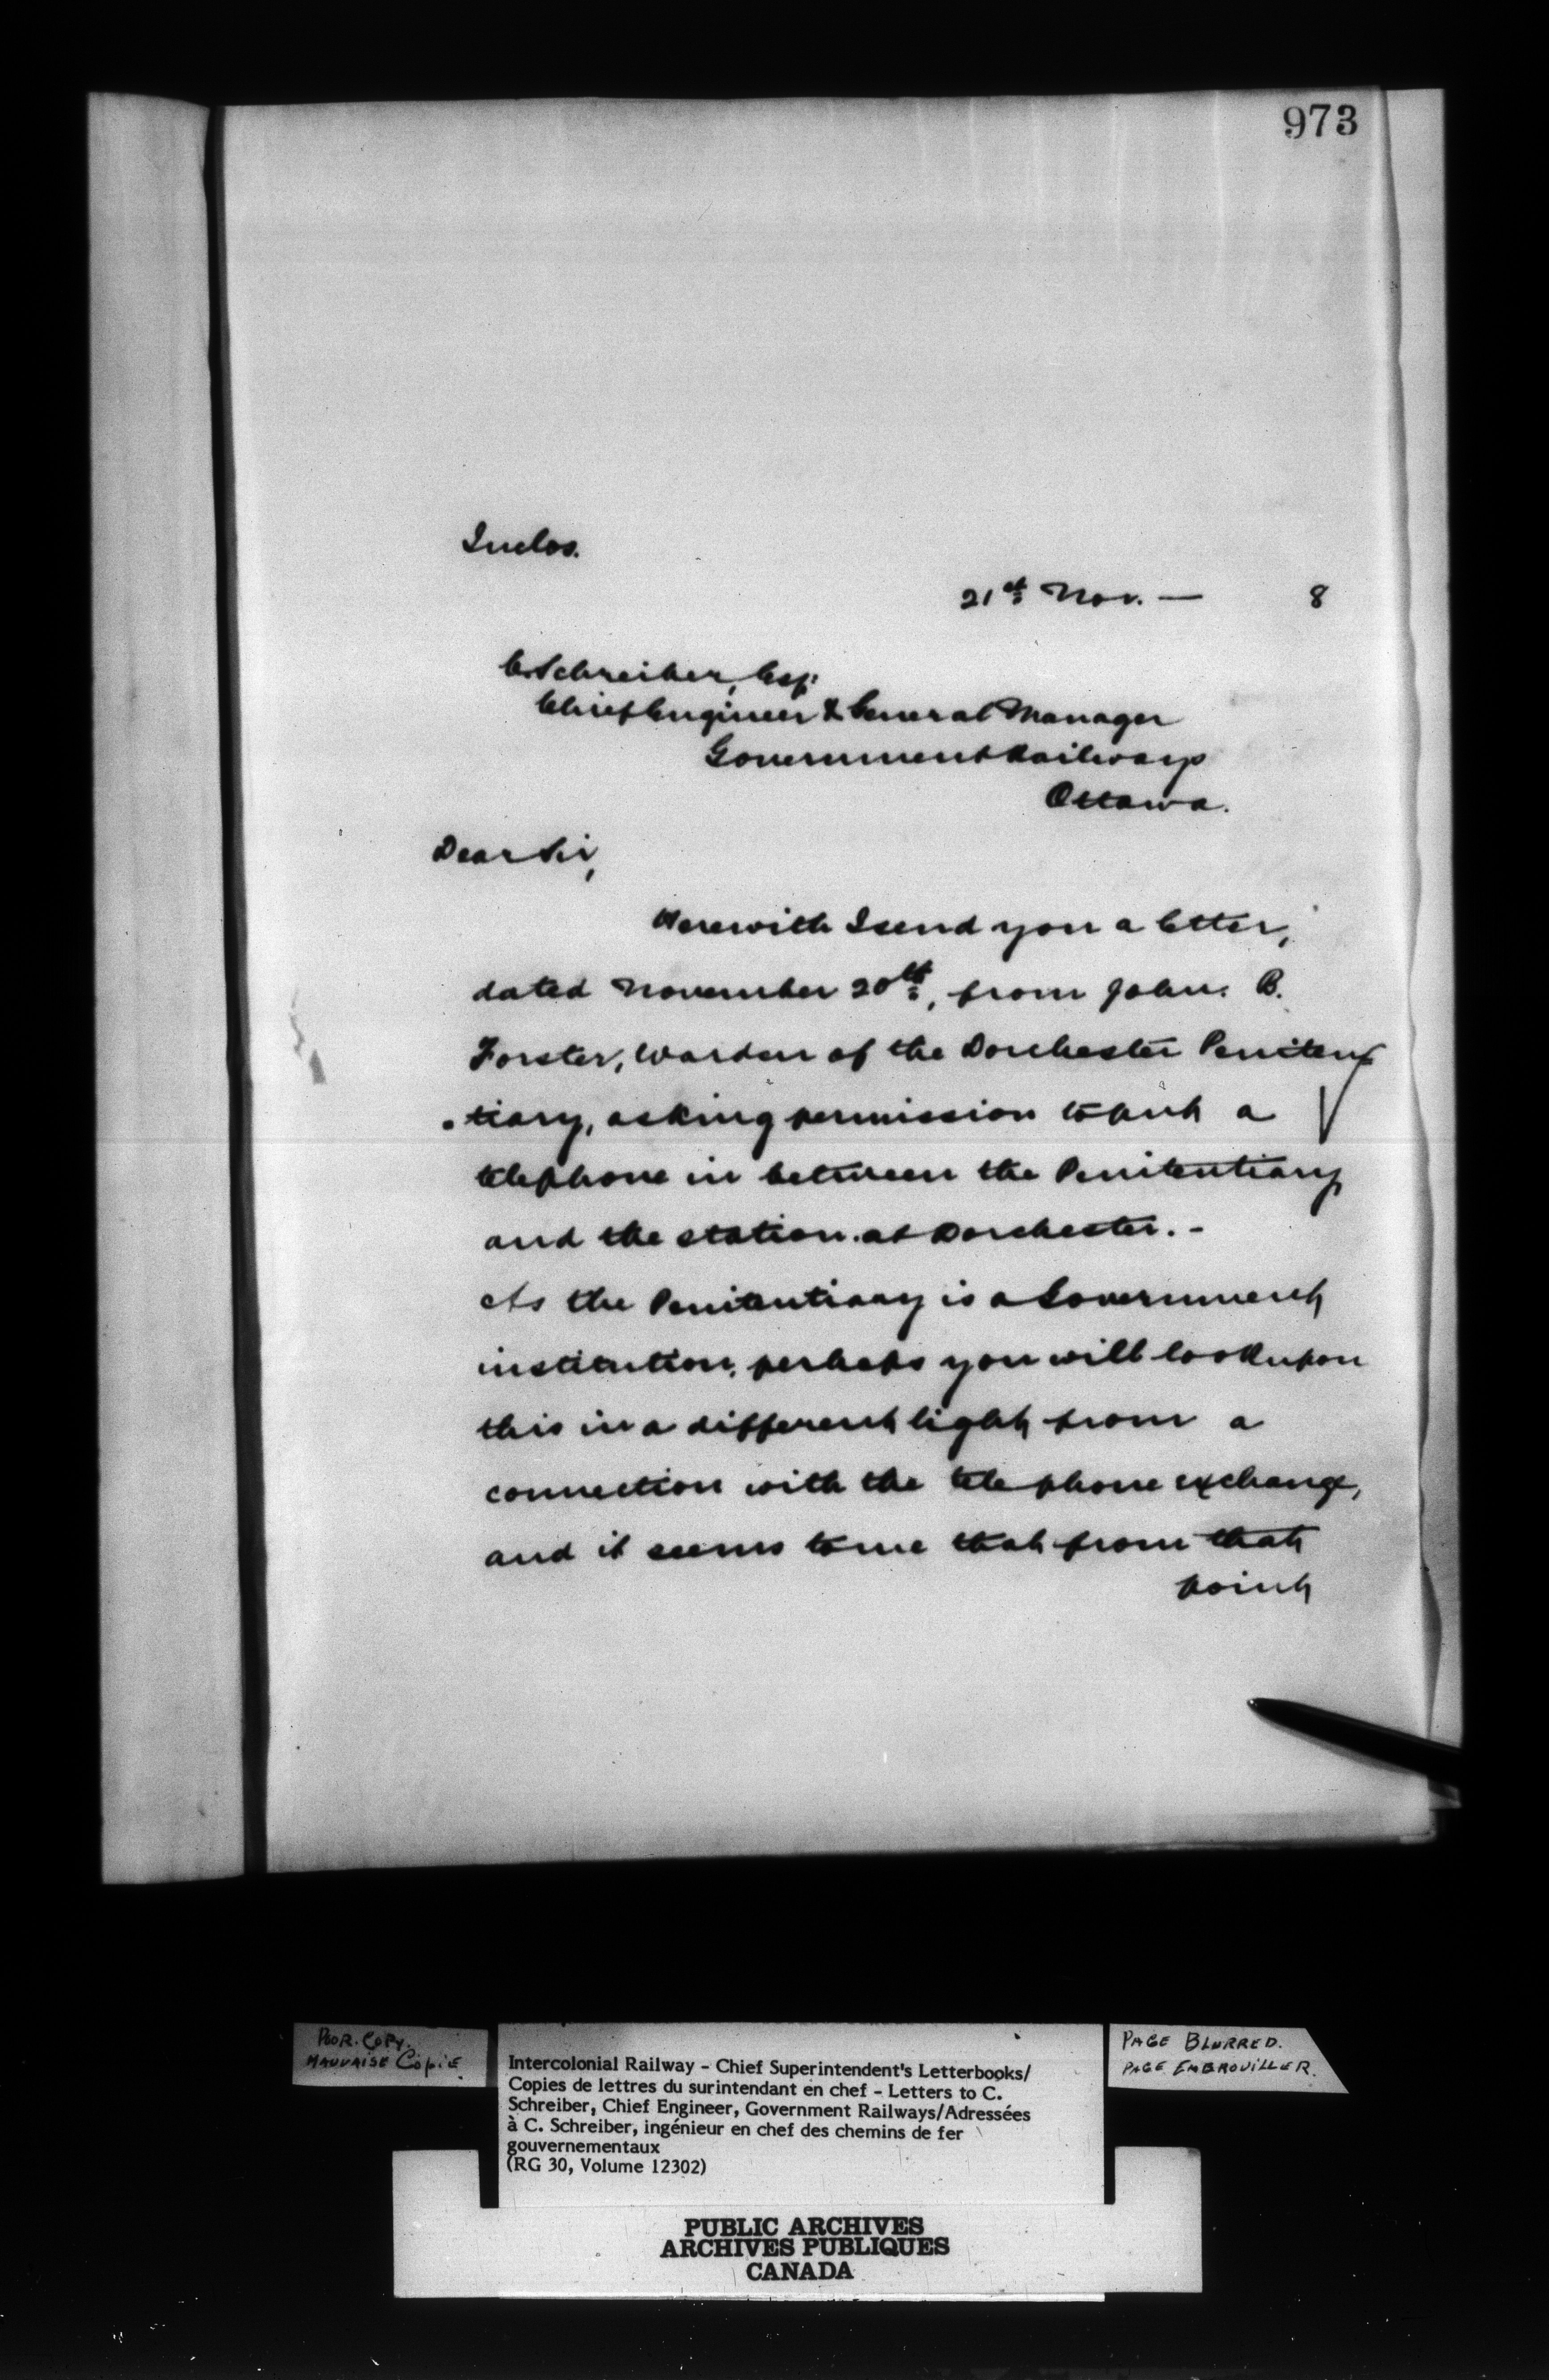 973
Inclos.
21st Nov. — 8
C. Schreiber, Esq.
Chief Engineer & General Manager
Government Railways
Ottawa.
Dear Sir,
Herewith I send you a letter,
dated November 20th, from John B.
Forster, Warden of the Dorchester Peniten
tiary, asking permission to put a
telephone in between the Penitentiary
and the station at Dorchester. -
As the Penitentiary is a Government
institution, perhaps you will look upon
this in a different light from a
connection with the telephone exchange,
and it seems to me that from that
point
POOR. COPY.
MAUVAISE COPIE
Intercolonial Railway - Chief Superintendent's Letterbooks/
Copies de lettres du surintendant en chef - Letters to C.
Schreiber, Chief Engineer, Government Railways/Adressées
à C. Schreiber, ingénieur en chef des chemins de fer
gouvernementaux
(RG 30, Volume 12302)
PAGE BLURRED.
PAGE EMBROUILLER.
PUBLIC ARCHIVES
ARCHIVES PUBLIQUES
CANADA